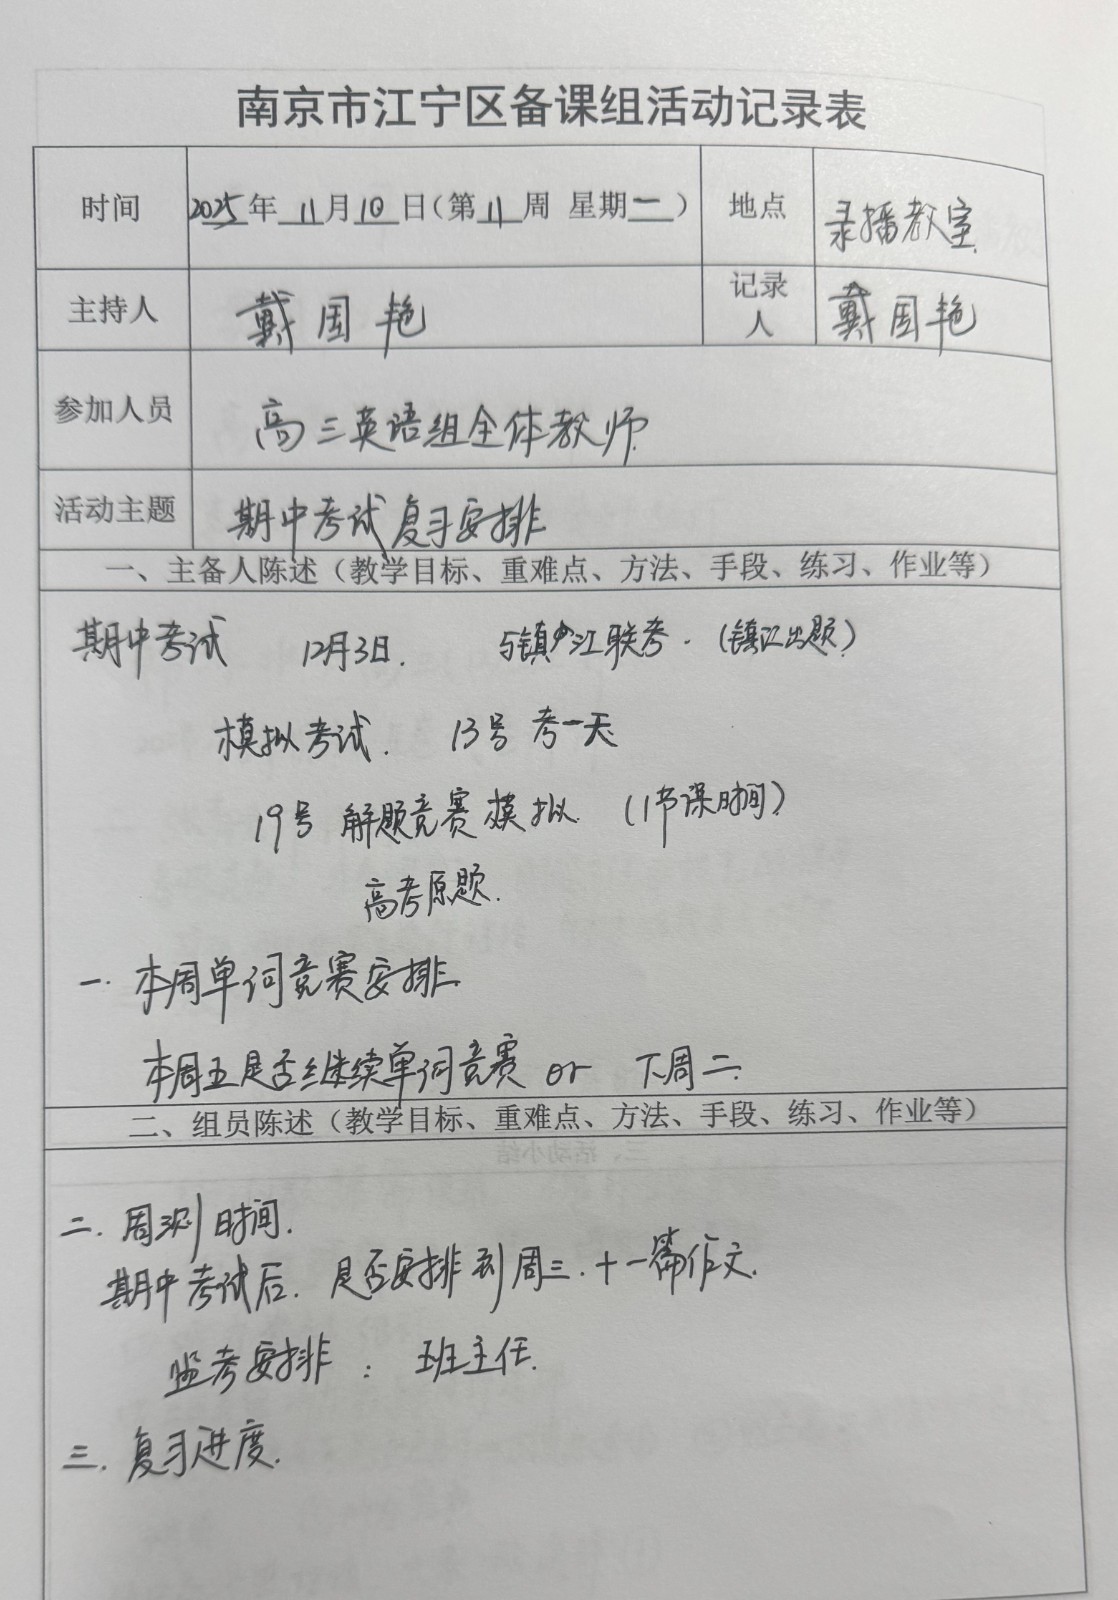 南京市江宁区备课组活动记录表
时间 2025年 11月10日(第11周 星期一) 地点 录播教室
主持人 戴国艳 记录人 戴国艳
参加人员 高三英语组全体教师
活动主题 期中考试复习安排
一、主备人陈述(教学目标、重难点、方法、手段、练习、作业等)
期中考试 12月3日. 与镇江联考.(镇江出题)
模拟考试. 13号 考一天
19号 解题竞赛模拟.(1节课时间)
高考原题.
一.本周单词竞赛安排.
本周五是否继续单词竞赛 or 下周二.
二、组员陈述(教学目标、重难点、方法、手段、练习、作业等)
二.周测时间.
期中考试后.是否安排到周三.十一篇作文.
监考安排:班主任.
三.复习进度.